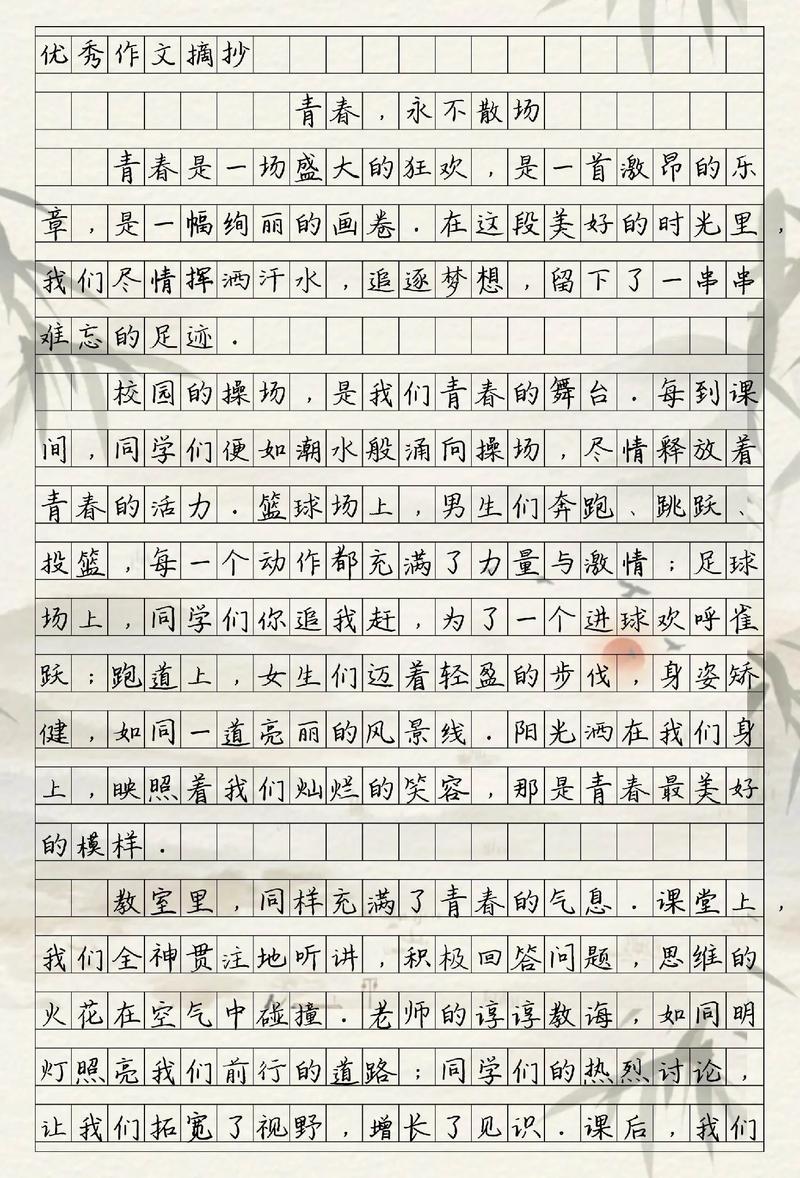 优秀作文摘抄
青春，永不散场
青春是一场盛大的狂欢，是一首激昂的乐
章，是一幅绚丽的画卷．在这段美好的时光里，
我们尽情挥洒汗水，追逐梦想，留下了一串串
难忘的足迹．
校园的操场，是我们青春的舞台．每到课
间，同学们便如潮水般涌向操场，尽情释放着
青春的活力．篮球场上，男生们奔跑、跳跃、
投篮，每一个动作都充满了力量与激情；足球
场上，同学们你追我赶，为了一个进球欢呼雀
跃；跑道上，女生们迈着轻盈的步伐，身姿矫
健，如同一道亮丽的风景线．阳光洒在我们身
上，映照着我们灿烂的笑容，那是青春最美好
的模样．
教室里，同样充满了青春的气息．课堂上，
我们全神贯注地听讲，积极回答问题，思维的
火花在空气中碰撞．老师的谆谆教海，如同明
灯照亮我们前行的道路；同学们的热烈讨论，
让我们拓宽了视野，增长了见识．课后，我们